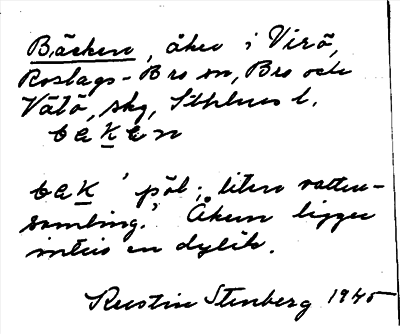 Bäcken, åker i Virö,
Roslags-Bro sn, Bro och
Vätö, skg, Sthlms l.
bɛḵɛn
bɛḵ 'pöl; liten vatten-
samling.' Åkern ligger
intill en dylik.
Kerstin Stenberg 1945